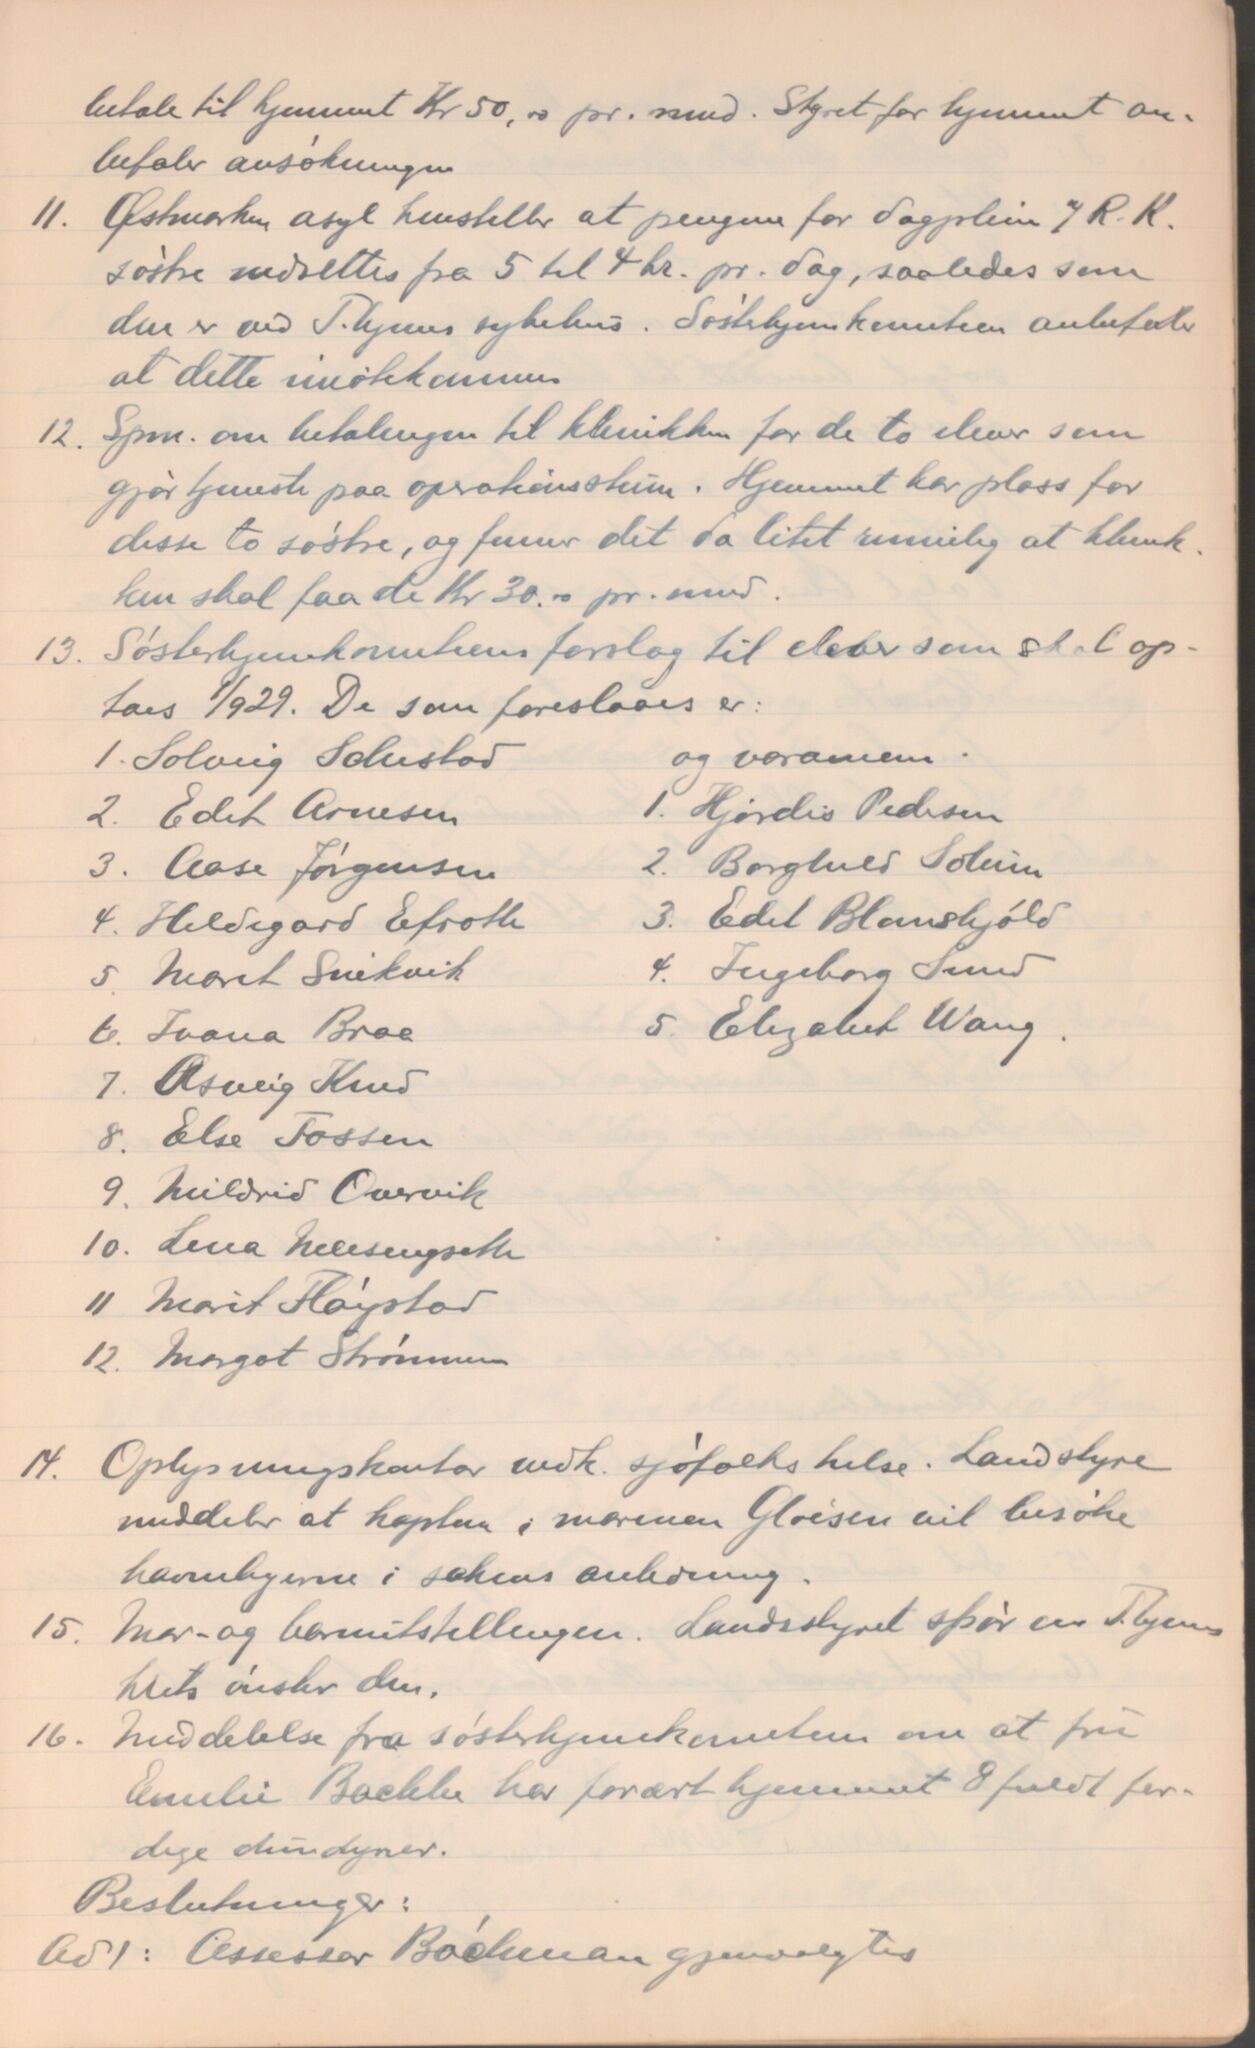 betale til hjemmet Kr 50,00 pr. mnd. Styret for hjemmet an-
befaler ansökningen
11. Østmarken asyl henstiller at pengene for dagpleien R.K.
söstre nedsettes fra 5 til 4 kr. pr. dag, saaledes som
den er ved T.hjems sykehus. Sösterhjemkomiteen anbefaler
at dette imötekommes
12. Spm. om betalingen til klinikken for de to elever som
gjör tjeneste paa operationsstuen. Hjemmet har plass for
disse to söstre, og finner det da litet rimelig at klinik-
ken skal faa de Kr 30.00 pr. mnd.
13. Sösterhjemkomiteens forslag til elever som skal op-
taes 1/9 29. De som foreslaaes er:
1. Solveig Selnstad og varamenn.
2. Edit Arnesen 1. Hjördis Pedersen
3. Aase Jörgensen 2. Borghild Solum
4. Hildegard Efroth 3. Edel Blomskjöld
5. Marit Snikvik 4. Ingeborg Sund
6. Ivana Braa 5. Elizabet Wang.
7. Asveig Kund
8. Else Fossen
9. Mildrid Overvik
10. Lena Nelesengseth
11 Marit Flöystad
12. Margot Strömmen
14. Oplysningskontor vedk. sjöfolks helse. Landsstyre
meddeler at kaptein i marinen Gloisen vil besöke
havnebyerne i sakens anledning.
15. Mor- og barnutstillingen. Landsstyret spör om T.hjems
krets önsker den.
16. Meddelelse fra sösterhjemkomiteen om at fru
Emilie Backke har forært hjemmet 8 fuldt fer-
dige dundyner.
Beslutninger:
Ad 1: Assessor Böckman gjenvalgtes